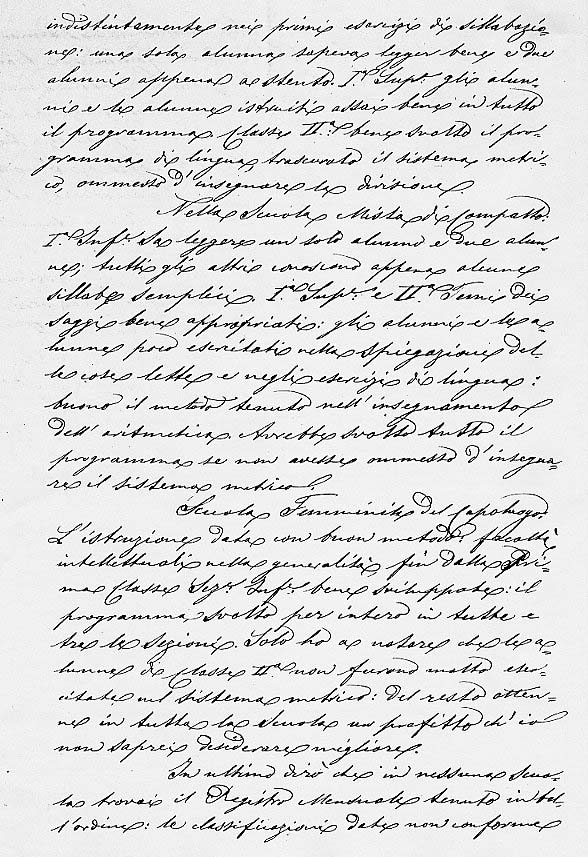 indistintamente nei primi esercizi di sillabazio-
ne: una sola alunna sapeva legger bene e due
alunni appena a stento. I.ª Sup.e gli alun-
ni e le alunne istruiti assai bene in tutto
il programma Classe II.ª bene svolto il pro-
gramma di lingua, trascurato il sistema metri-
co, ommesto d'insegnare la divisione
Nella Scuola Mista di Compatto.
I.ª Inf.e Sa leggere un solo alunno e due alun-
ne; tutti gli altri conoscono appena alcune
sillabe semplici. I.ª Sup.e e II.ª Temi dei
saggi bene appropriati: gli alunni e le a-
lunne poco esercitati nella spiegazione del-
le cose lette e negli esercizi di lingua:
buono il metodo tenuto nell'insegnamento
dell'aritmetica. Avrebbe svolto tutto il
programma se non avesse ommesto d'insegna-
re il sistema metrico.
Scuola Femminile del Capoluogo.
L'istruzione data con buon metodo: facoltà
intellettuali nella generalità fin dalla Pri-
ma Classe Sez.e Inf.e bene sviluppate: il
programma svolto per intero in tutte e
tre le sezioni. Solo ho a notare che le a-
lunne di Classe II.ª non furono molto eser-
citate nel sistema metrico: del resto otten-
ne in tutta la Scuola un profitto ch'io
non saprei desiderare migliore.
In ultimo dirò che in nessuna Scuo-
la trovai il Registro Mensuale tenuto in bel-
l'ordine: le classificazioni date non conforme